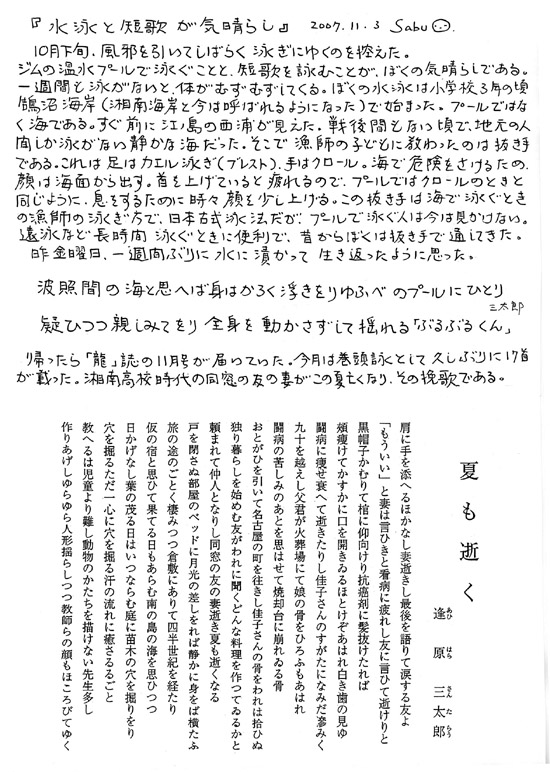 『水泳と短歌が気晴らし』 2007.11.3 Sabu
10月下旬、風邪を引いてしばらく泳ぎにゆくのを控えた。
ジムの温水プールで泳ぐことと、短歌を詠むことが、ぼくの気晴らしである。
一週間も泳がないと、体がむずむずしてくる。ぼくの水泳は小学校3年の頃
鵠沼海岸(湘南海岸と今は呼ばれるようになった)で始まった。プールではな
く海である。すぐ前に江ノ島の西浦が見えた。戦後間もない頃で、地元の人
間しか泳がない静かな海だった。そこで漁師の子どもに教わったのは抜き手
である。これは足はカエル泳ぎ(ブレスト)、手はクロール。海で危険をさけるため、
顔は海面から出す。首を上げていると疲れるので、プールではクロールのときと
同じように、息をするために時々顔を少し上げる。この抜き手は海で泳ぐとき
の漁師の泳ぎ方で、日本古式泳法だが、プールで泳ぐ人は今は見かけない。
遠泳など長時間泳ぐときに便利で、昔からぼくは抜き手で通してきた。
昨金曜日、一週間ぶりに水に漬かって生き返ったように思った。
波照間の海と思へば身はかろく浮きをりゆふべのプールにひとり
三太郎
疑ひつつ親しみてをり全身を動かさずして揺れる「ぶるぶるくん」
帰ったら「龍」誌の11月号が届いていた。今月は巻頭詠として久しぶりに17首
が載った。湘南高校時代の同窓の友の妻がこの夏亡くなり、その挽歌である。
夏も逝く
逢原三太郎
あひ はら さん た らう
肩に手を添へるほかなし妻逝きし最後を語りて涙する友よ
「もういい」と妻は言ひきと看病に疲れし友に言ひて逝けりと
黒帽子かむりて棺に仰向けり抗癌剤に髪抜けたれば
頰瘦けてかすかに口を開きゐるほとけぞあはれ白き歯の見ゆ
闘病に瘦せ衰へて逝きたりし佳子さんのすがたになみだ滲みく
九十を越えし父君が火葬場にて娘の骨をひろふもあはれ
闘病の苦しみのあとを思はせて焼却台に崩れゐる骨
おとがひを引いて名古屋の町を往きし佳子さんの骨をわれは拾ひぬ
独り暮らしを始めむ友がわれに聞くどんな料理を作つてゐるかと
頼まれて仲人となりし同窓の友の妻逝き夏も逝くなる
戸を閉さぬ部屋のベッドに月光の差しをれば静かに身をば横たふ
旅の途のごとく棲みつつ倉敷にありて四半世紀を経たり
仮の宿と思ひて果てる日もあらむ南の島の海を思ひつつ
日かげなし葉の茂る日はいつならむ庭に苗木の穴を掘りをり
穴を掘るただ一心に穴を掘る汗の流れに癒さるるごと
教へるは児童より難し動物のかたちを描けない先生多し
作りあげしゆらゆら人形揺らしつつ教師らの顔もほころびてゆく